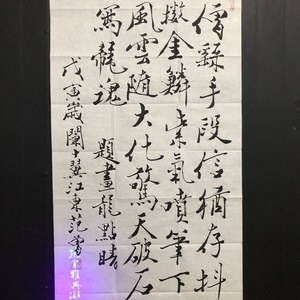 僧繇手段信猶存抖
擻金鱗紫氣噴筆下
風雲隨大化驚天破石
寫龍魂 題畫龍點睛
戊寅歲闌十翼江東范曾